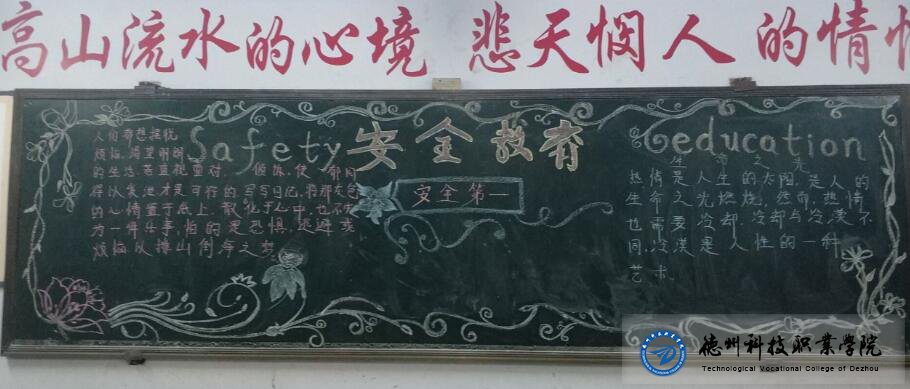 高山流水的心境 悲天悯人的情
Safety 安全教育 education
安全第一
人们都想摆脱
烦恼,渴望明朗
的生活,若蓝视重对,
得以发泄才是可行的,写写日记,将那灰色
的心情置于纸上,散化于心中,也不失
为一件乐事,怕的是恐惧、逃避 或
烦恼以排山倒海之势
生命之光
热情是人生的太阳,是人的
生命之光燃烧,然而,热情
也需要冷却,冷却与冷漠不
同,冷漠是人性的一种
艺术。
德州科技职业学院
Technological Vocational College of Dezhou